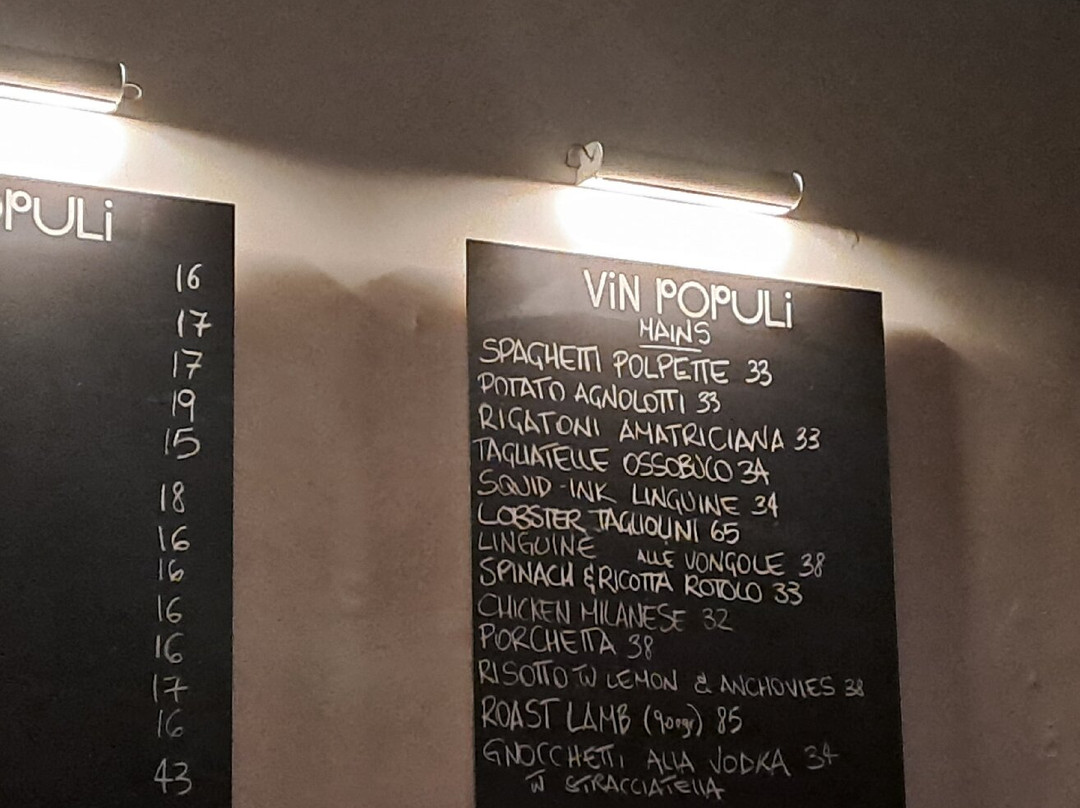 OPULi
16
17
17
19
15
18
16
16
16
16
17
16
43
ViN POPULi
MAINS
SPAGHETTI POLPETTE 33
POTATO AGNOLOTTI 33
RIGATONI AMATRICIANA 33
TAGLIATELLE OSSOBUCO 34
SQUID-INK LINGUINE 34
LOBSTER TAGLIOLINI 65
LINGUINE ALLE VONGOLE 38
SPINACH & RICOTTA ROTOLO 33
CHICKEN MILANESE 32
PORCHETTA 38
RISOTTO W LEMON & ANCHOVIES 38
ROAST LAMB (900gr) 85
GNOCCHETTI ALLA VODKA 34
W STRACCIATELLA